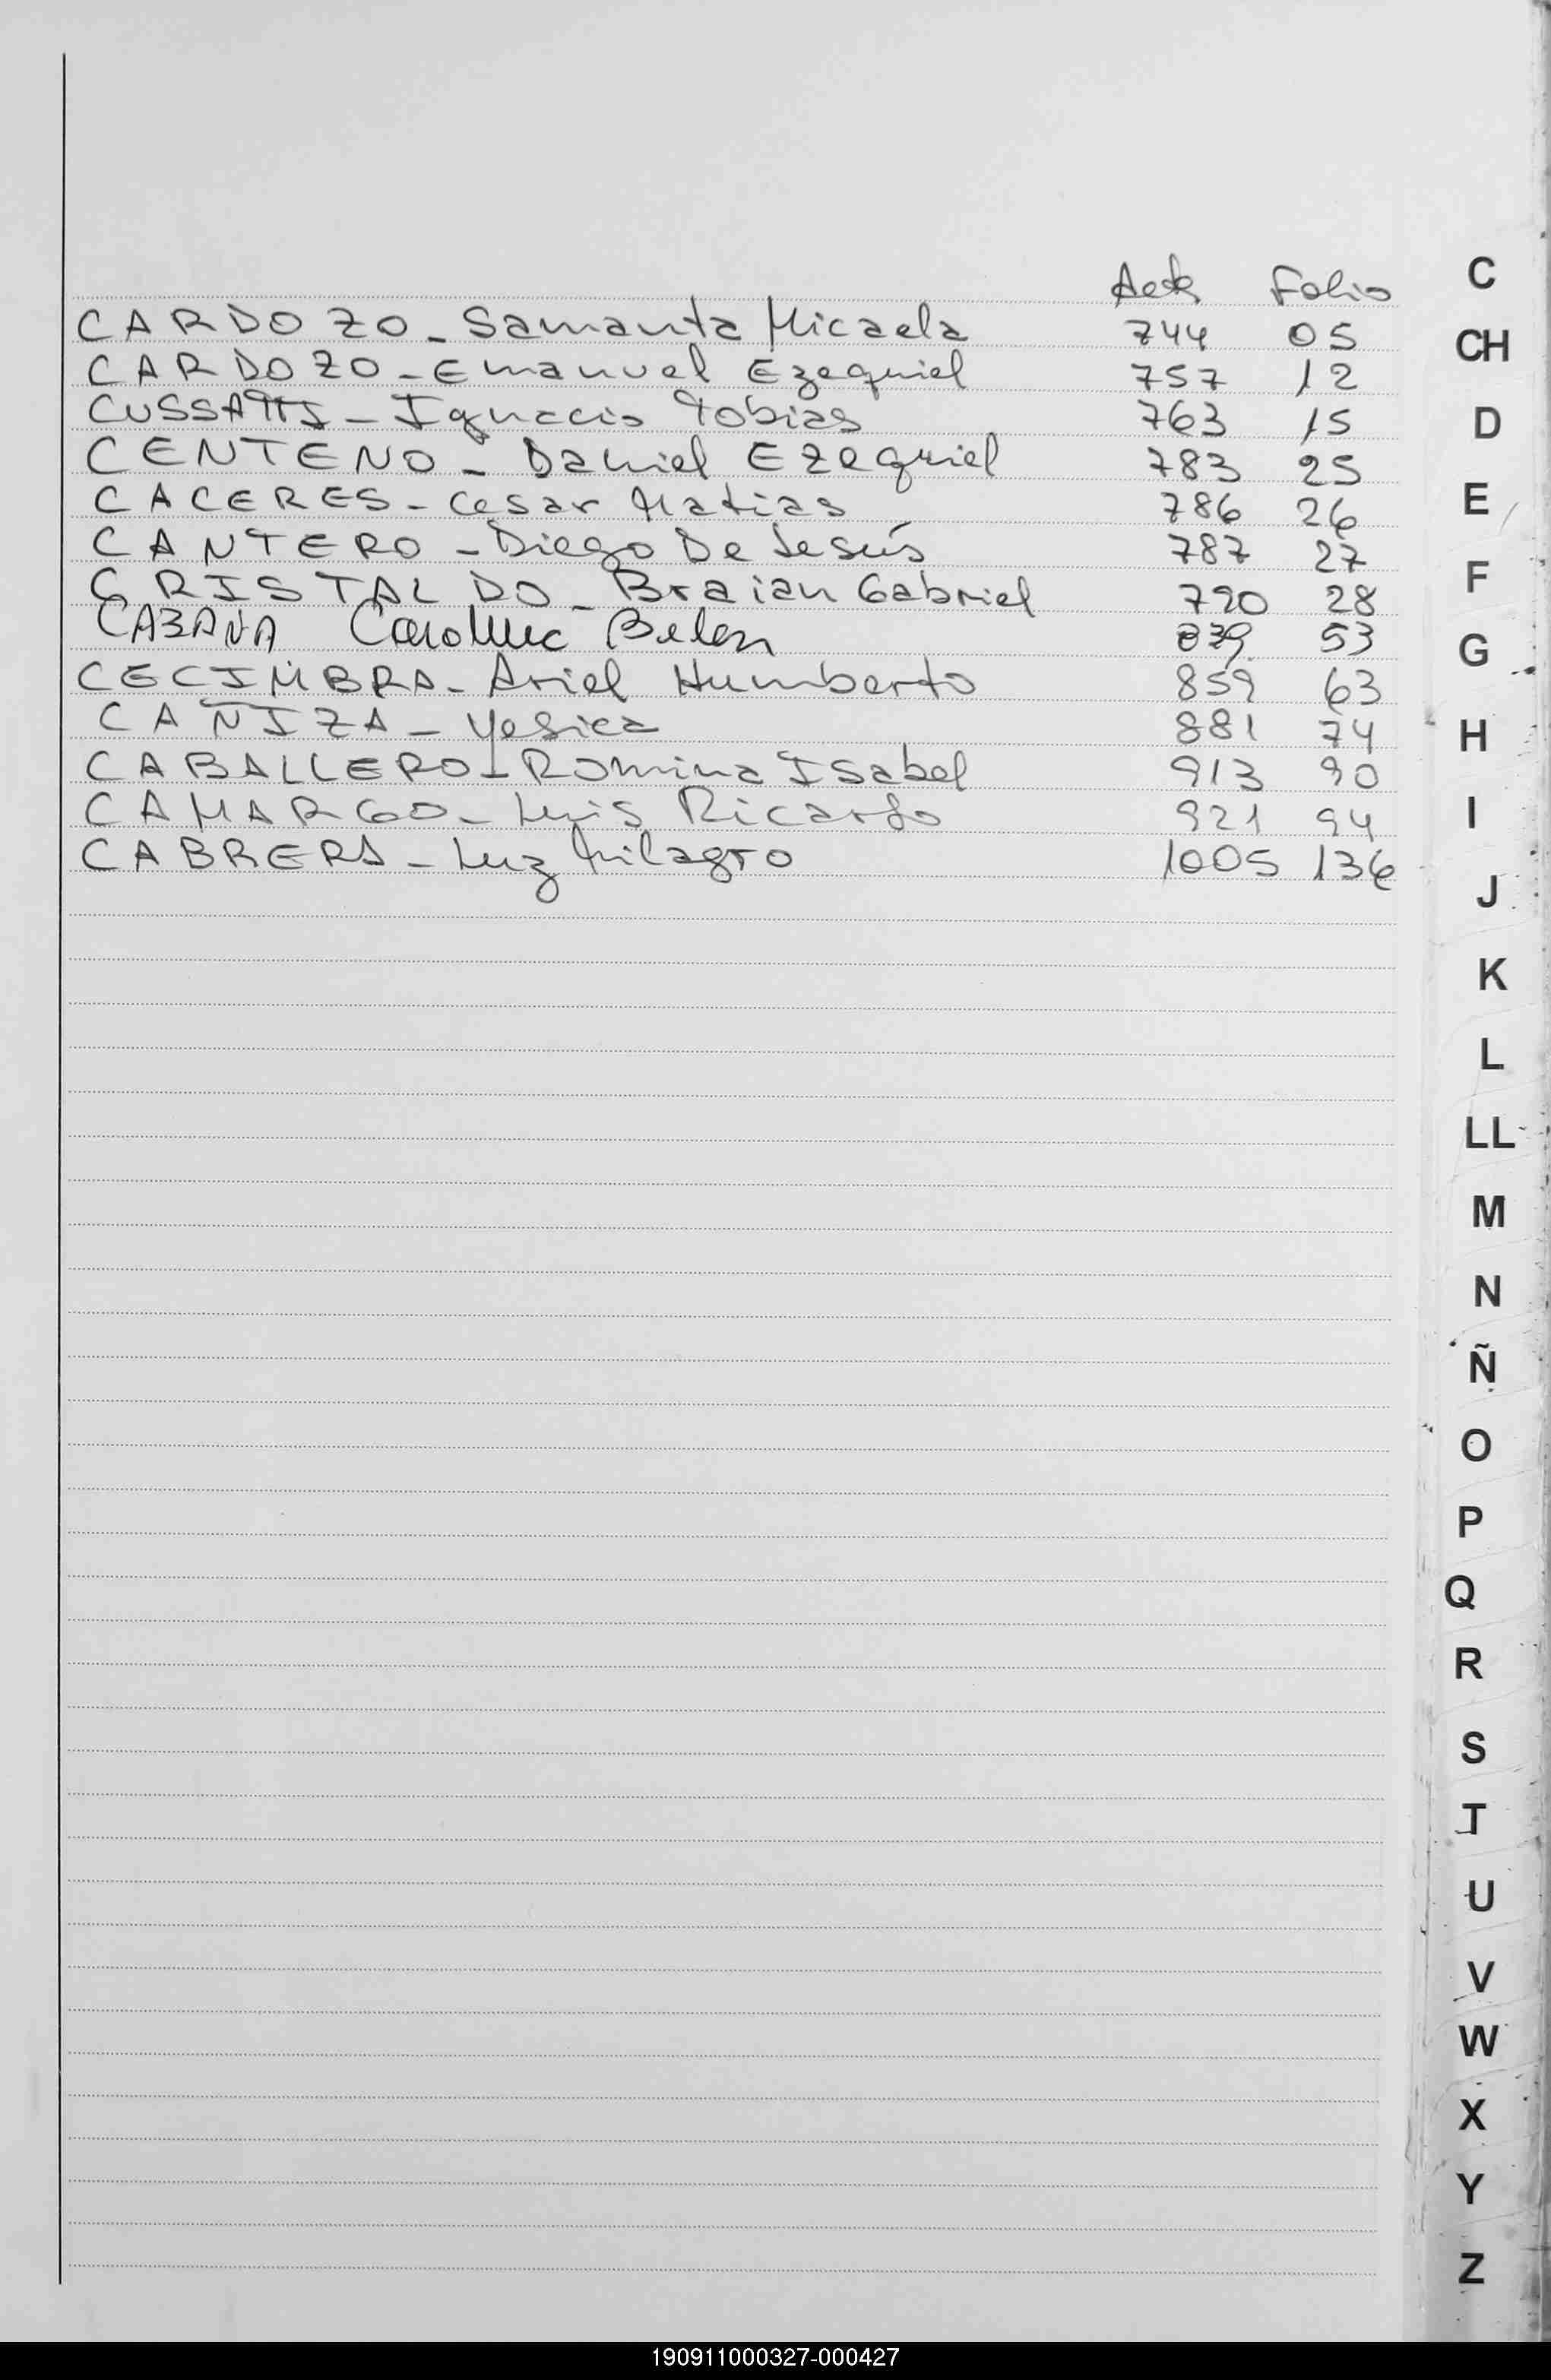 Acta Folio
CARDOZO - Samanta Micaela 744 05
CARDOZO - Emanuel Ezequiel 757 12
CUSSATTI - Ignacio Tobias 763 15
CENTENO - Daniel Ezequiel 783 25
CACERES - Cesar Matias 786 26
CANTERO - Diego De Jesús 787 27
CRISTALDO - Braian Gabriel 790 28
CABAÑA Carolina Belen 839 53
CECIMBRA - Ariel Humberto 859 63
CAÑIZA - Yesica 881 74
CABALLERO - Romina Isabel 913 90
CAMARGO - Luis Ricardo 921 94
CABRERA - Luz Milagro 1005 136
C
CH
D
E
F
G
H
I
J
K
L
LL
M
N
Ñ
O
P
Q
R
S
T
U
V
W
X
Y
Z
190911000327-000427